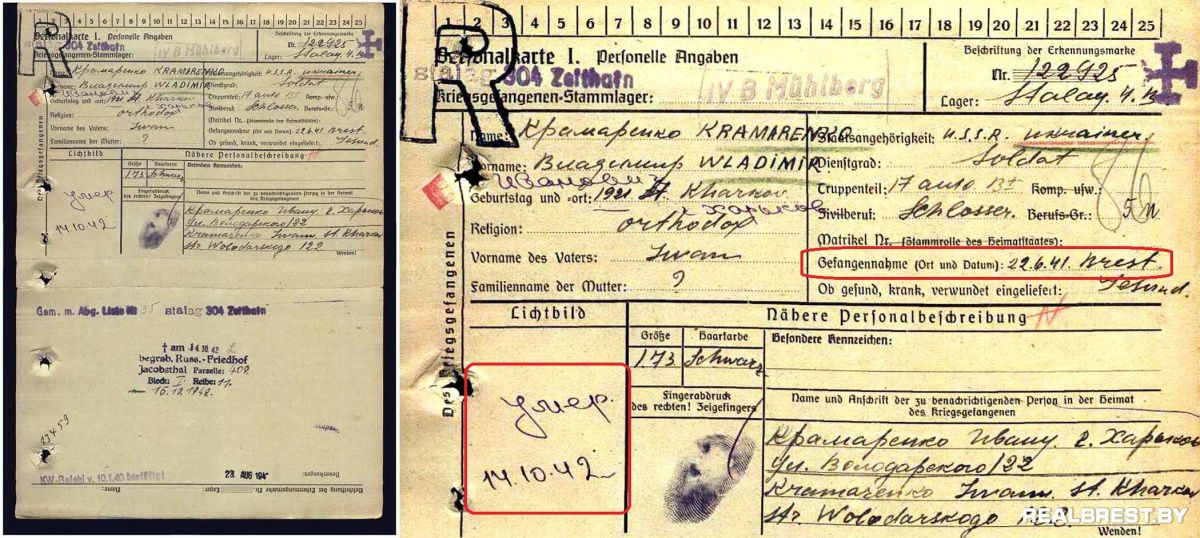 2 3 4 5 6 7 8 9 10 11 12 13 14 15 16 17 18 19 20 21 22 23 24 25
R
Personalkarte I. Personelle Angaben
Beschriftung der Erkennungsmarke
stalag 304 Zeithain
Nr. 122925
Kriegsgefangenen-Stammlager:
Lager: Stalag 4. B
IV B Mühlberg
Name: Крамаренко KRAMARENKO
Staatsangehörigkeit: U.S.S.R. ukrainer
Vorname: Владимир WLADIMIR
Dienstgrad: Soldat
Иванович
Geburtstag und -ort: 1921 St. Kharkov
Truppenteil: 17 auto Bt Komp. usw.:
г. Харьков
Religion: orthodox
Zivilberuf: Schlosser Berufs-Gr.: 5
Matrikel Nr. (Stammrolle des Heimatstaates):
Vorname des Vaters: Iwan
Gefangennahme (Ort und Datum): 22.6.41. Brest.
Familienname der Mutter: ?
Ob gesund, krank, verwundet eingeliefert: Gesund.
Des Kriegsgefangenen
Lichtbild
Nähere Personalbeschreibung
Größe
Haarfarbe
Besondere Kennzeichen:
1.73
Schwarz
умер
14.10.42
Fingerabdruck
des rechten! Zeigefingers
Name und Anschrift der zu benachrichtigenden Person in der Heimat
des Kriegsgefangenen
Крамаренко Ивану г. Харьков
ул. Володарского 122
Kramarenko Iwan St. Kharkov
Str Wolodarskogo 122
Wenden!
Gem. m. Abg. Liste № 35 stalag 304 Zeithain
† am 14.10.42
begrab. Russ.-Friedhof
Jacobsthal Parzelle: 409.
Block: I Reihe: 11.
am 15.10.1942.
23. AUG 194
KW-Beschl v. 10.1.40 bestätigt
Bemerkungen:
Name
Lager
Nr.
Beschriftung der Erkennungsmarke
REALBREST.BY